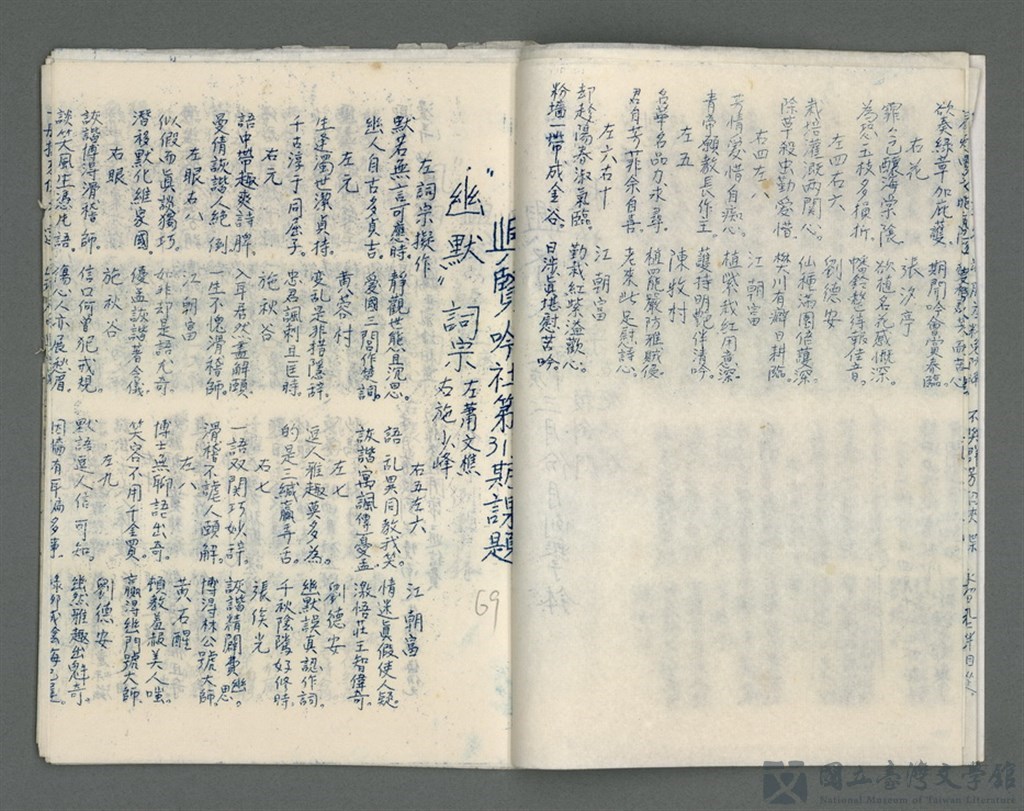 欲奏綠章加庇護。 期開吟會賞春臨。
右花 張汐亭
欲植名花感慨深。
為恐玉枝多損折 幡鈴懸待報佳音。
左四右六 劉德安
栽培灌溉両関心。 仙種滿園作護深。
除草殺虫勤愛惜 樊川有癖日耕臨
右四左八 江朝富
芳情愛惜自痴心。 植紫栽红用意深。
青帝願教長作主 護持明艷伴清吟。
左五 陳牧村
名華名品力求尋。 植罷嚴防雅賊侵
君自芳菲余自喜 老來些足慰詩心。
左六右十 江朝富
却趁陽春淑氣臨。 勤栽红紫溢歡心。
粉墻一帶成金谷。 日涉真堪慰苦吟。
興賢吟社第31期課題
"幽默" 詞宗 左蕭文樵
右施少峰
左詞宗擬作
默若無言可應時。 靜觀世態且沉思。
幽人自古多貞吉。 愛國三閭作楚詞。
左元 黃蓉村
生逢濁世潔貞持。 变乱是非措隱辞。
千古淳于同屈子。 忠君諷刺且匡時。
右元 施秋谷
語中帶趣爽詩脾。 入耳居然盡解頤
曼倩詼諧人絕倒 一生不愧滑稽師。
左眼右八 江朝富
似假而真談獨巧 如非却是語尤奇。
潛移默化維家國 優孟詼諧著令儀
右眼 施秋谷
詼諧博得滑稽師。 信口何曾犯戒規。
談笑風生憑片語。 傷心人亦展愁眉。
右五左六 江朝富
語乱異同教我笑。 情迷真假使人疑。
詼諧寓諷傳憂孟。 激悟莊王智偉奇。
左七 劉德安
逗人雅趣莫多為。 幽默誤真認作詞。
的是三緘贏弄舌 千秋陰騭好修時。
右七 張俟光
一語双関巧妙辞。 詼諧精闢費幽思。
滑稽不謔人頤解。 博得林公號大師。
左八 黃石醒
博士無聊語出奇。 頓教羞赧美人嗤。
笑容不用千金買。 贏得幽門號大師
左九 劉德安
默語逗人信可知。 幽然雅趣出魁奇。
69
國立臺灣文學館
National Museum of Taiwan Literature